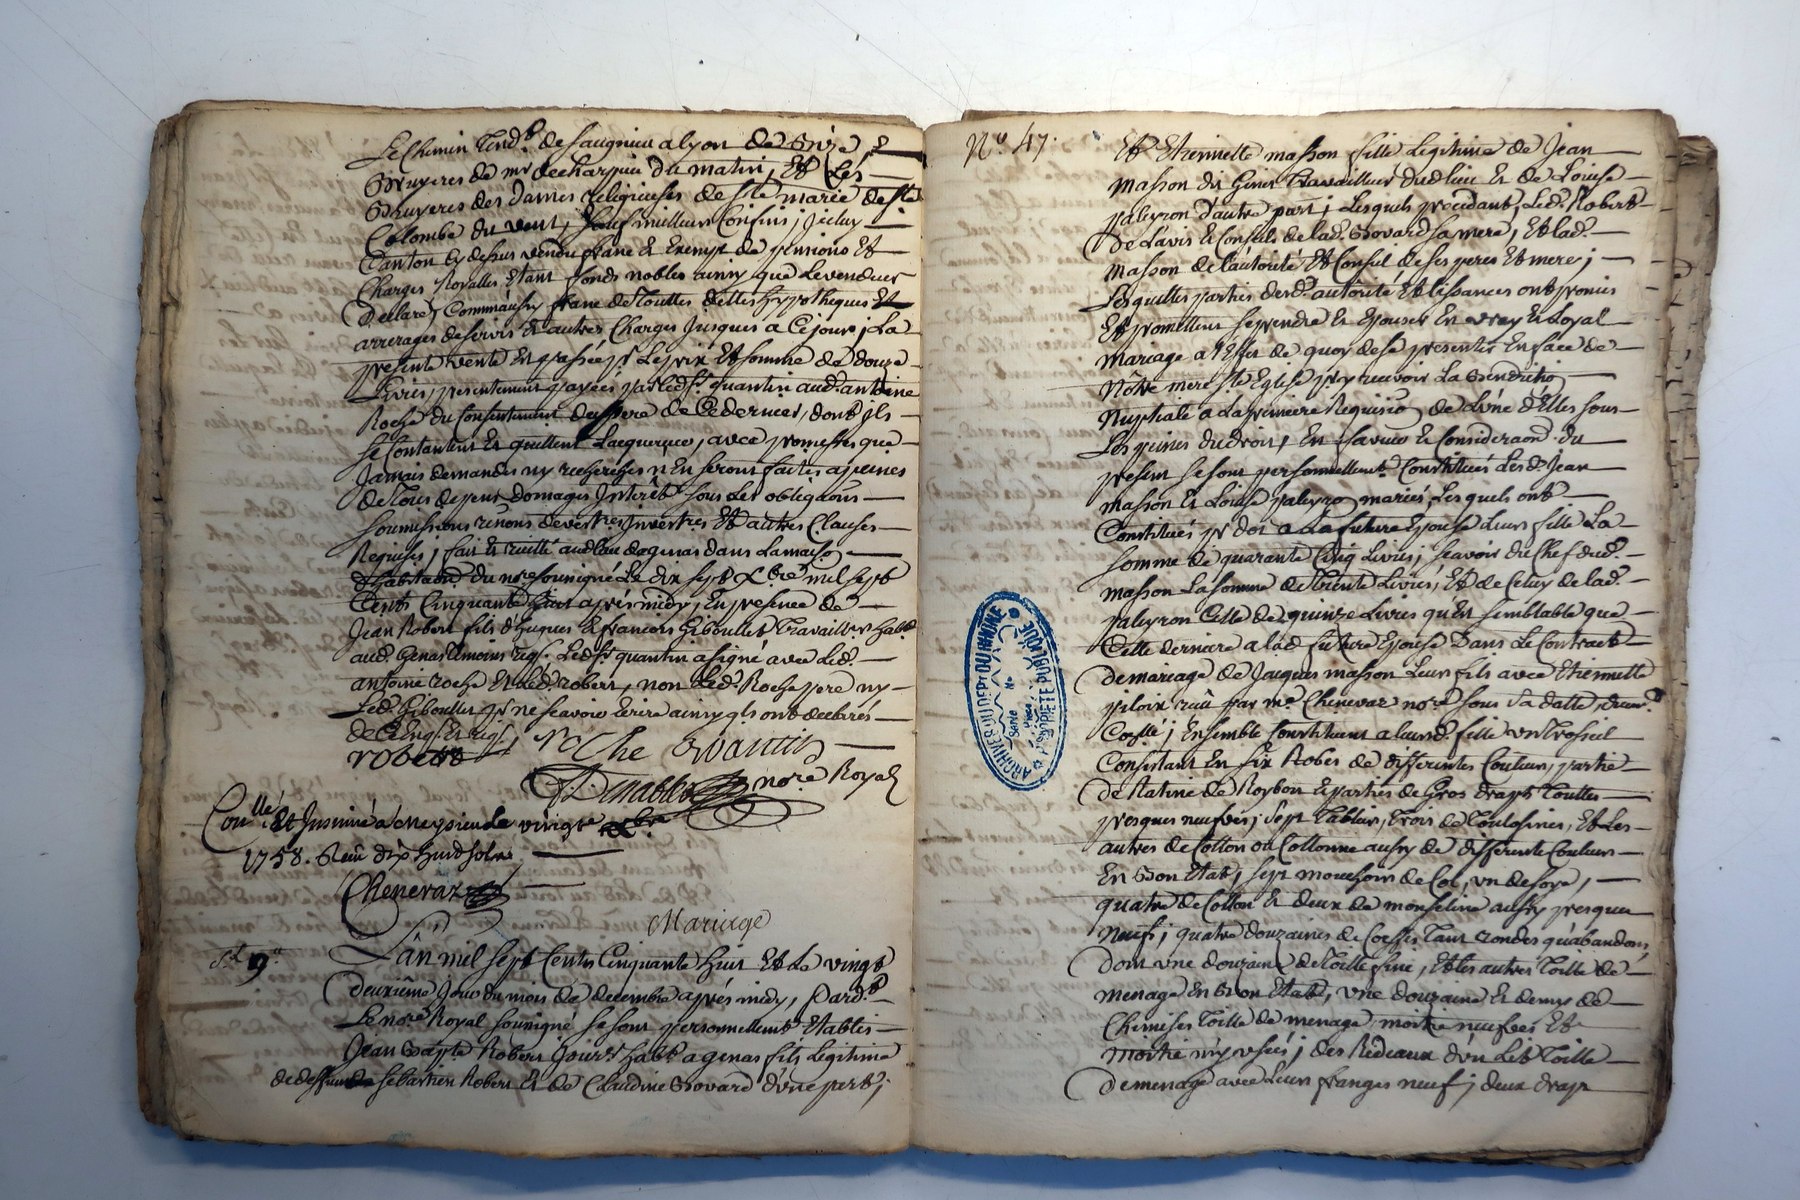 Le Chemin Tend.t de Saugnieu a lyon de Bize, &
Bruyeres de mr. decharpin du matin, Et Les
Bruyeres des Dames religieuses de Ste marie de Ste
Colombe du vent, Sauf meilleurs Confins, Jceluy
Canton Cy dessus vendu franc Et Exempt de pensions Et
Charges Royalles Etant fonds nobles ainsy que Levendeur
Declare, Comm'aussy franc de Touttes dettes hypotheques Et
arrerages de servis Et autres Charges Jusques a Ce jour, La
presente vente En passée pr. Le prix Et somme de douze
Livres, presentement payées par led. Sr. quantin aud. antoine
Roche du Consentement dud. pere de Ce dernier, dont Jls
se Contentent Et quittent L'acquereur, avec promesses que
Jamais demandes ny recherches n'En seront faites a peines
de Tous depens domages Jnterêts sous Les obligaons
soumissions renons devestres Jnvestres Et autres Clauses
Requises; fait Et recitté aud. lieu de genas dans La maison
d'habitaon du nore soussigné Le dix sept Xbre mil sept
Cents Cinquante huit après midy, En presence de
Jean Robert fils d'hugues Et francois Giboullet Travailleurs habt.
aud. Genas Temoins reqs. Led. Sr. quantin a signé avec Led.
antoine roche Et Led. robert, non Led. Roche pere ny
Led. Giboullet pr. ne scavoir Ecrire ainsy qls ont declarés
de Ce Enqs. Et reqs.
robert roche Quantin
nore Royal
Conllé Et Jnsinué a Meyzieu Le vingt Xbre
1758. Reçu dix huit sols
Chenevaz
Mariage
L'an mil sept Cents Cinquante huit Et Le vingt
deuxième Jour du mois de decembre après midy, Pard.t
Le nore Royal soussigné se sont personnellemt. Etablis
Jean Bapte Robert Jourr. habt. a genas fils Legitime
de deffunt Sebastien Robert Et de Claudine Bovard d'une part;
No. 47.
Et Etiennette masson fille Legitime de Jean
masson dit Travailleur dud. lieu Et de Louise
paleyron d'autre part; Lesquels procedant, Led. Robert
De L'avis Et Conseils de lad. Bovard sa mere, Et lad.
masson de l'autorité Et Conseil de ses peres Et mere;
Lesquelles parties desd. autorité Et lissances ont promis
Et promettent se prendre Et Epouser En vray Et Loyal
mariage a l'Effet de quoy de se presenter En face de
Nôtre mere Ste Eglise pr. y recevoir La Benediction
Nuptiale a La premiere Requision de L'une d'Elles sous
Les peines du droit, En faveur Et Consideraon du
present se sont personnellemt. Constitués Lesd. Jean
masson Et Louise paleyron mariés, Lesquels ont
Constitués pr. dot a La future Epouse Leur fille La
somme de quarante Cinq Livres; scavoir du Chef dud.
masson La somme de Trente Livres, Et de Celuy de lad.
paleyron Celle de quinze Livres qu'Est semblable que
Celle derniere a lad. future Epouse Dans Le Contract
de mariage de Jaques masson Leur fils avec Etiennette
piloix reçu par me. Chenevaz nore sous sa datte
Coñtté; Ensemble Constituent a leurd. fille un Trossel
Consistant En six Robes de differentes Couleurs, partie
De Ratine de Roybon Et partie de Gros drapts Touttes
presques neufves; sept Tabliers, Trois de Toulosines, Et Les
autres de Cotton ou Cottonne aussy de differente Couleurs
En Bon Etat, sept mouchoirs de Col, un de soye,
quatre de Cotton Et deux de mousseline aussy presques
Neufs; quatre douzaines de Coeffes Tant rondes qu'abandons,
dont une douzaine de Toille fine, Et les autres Toille de
menage En Bon Etat, une douzaine Et demy de
Chemises Toille de menage, moitié neufves Et
moitié my usées; des Rideaux d'un Lit Toille
De menage avec Leurs franges neufs; deux draps
ARCHIVES DU DEPT DU RHONE
Serie
No
Pièce
PROPRIETE PUBLIQUE